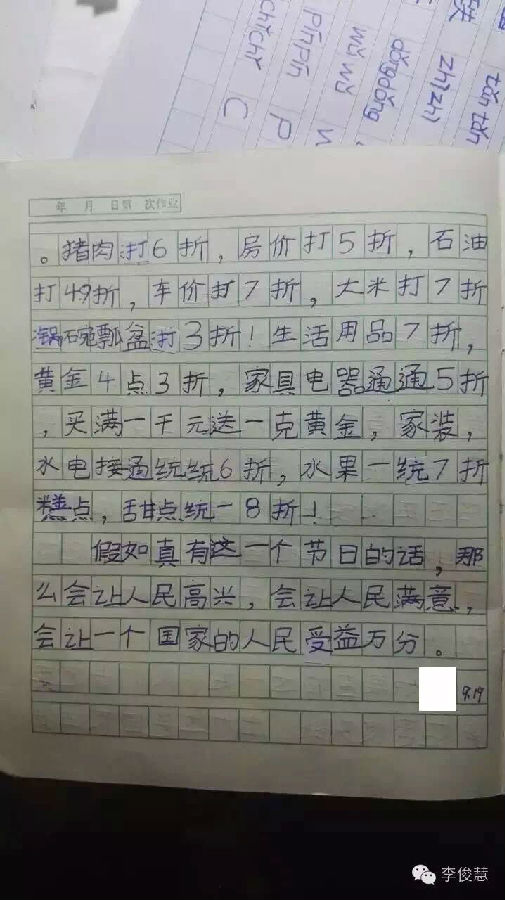 chīchī
C
pīnpīn
P
wǔ wǔ
dōngdōng
zhīzhī
tǎn tǎn
年 月 日第 次作业
。猪肉打6折，房价打5折，石油
打49折，车价打7折，大米打7折
锅碗瓢盆打3折！生活用品7折，
黄金4点3折，家具电器通通5折
，买满一千元送一克黄金，家装，
水电接通统统6折，水果一统7折
糕点，甜点统一8折！
假如真有这一个节日的话，那
么会让人民高兴，会让人民满意，
会让一个国家的人民受益万分。
9.19
李俊慧